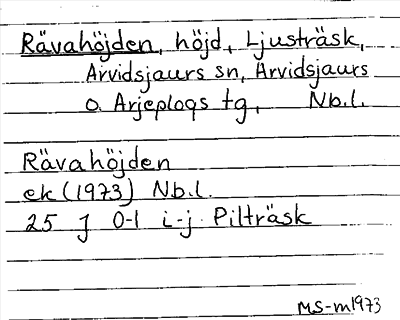 Rävahöjden, höjd, Ljusträsk,
Arvidsjaurs sn, Arvidsjaurs
o. Arjeplogs tg, Nb.l.
Rävahöjden
ek (1973) Nb.l.
25 J 0-1 i-j Pilträsk
MS-m1973